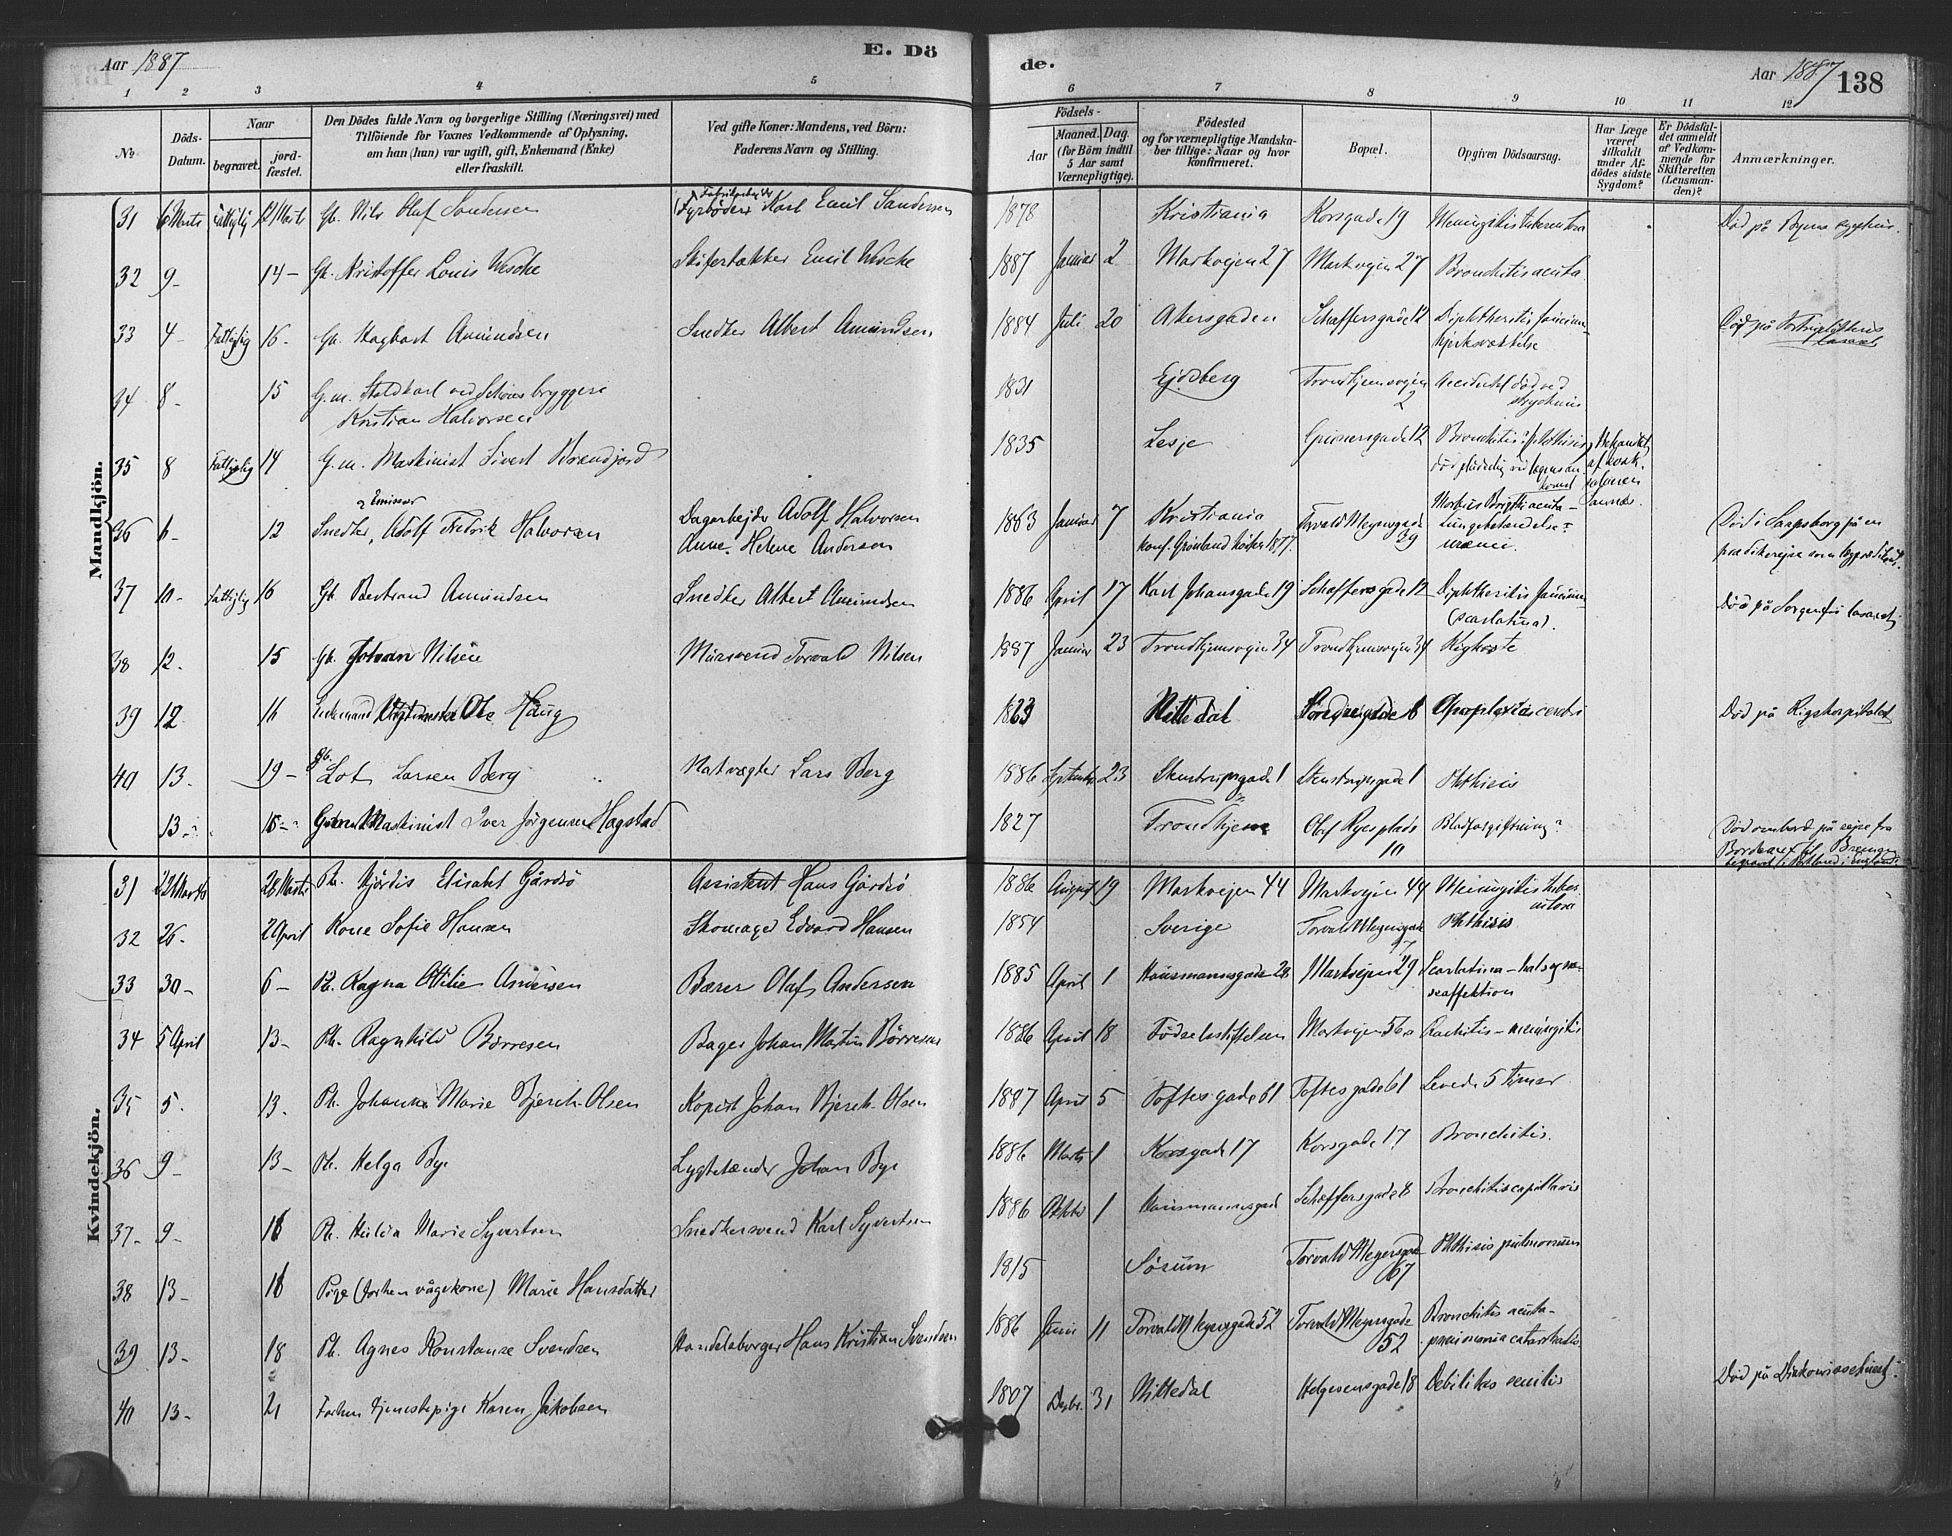 Aar 1887
E. Dö
de.
Aar 1887
138
1 2 3 4 5 6 7 8 9 10 11 12
No
Döds-
Datum.
Naar
begravet.
jord-
fæstet.
Den Dödes fulde Navn og borgerlige Stilling (Næringsvei) med
Tilföiende for Voxnes Vedkommende af Oplysning,
om han (hun) var ugift, gift, Enkemand (Enke)
eller fraskilt.
Ved gifte Koner: Mandens, ved Börn:
Faderens Navn og Stilling.
Födsels-
Aar
Maaned. Dag.
(for Börn indtil
5 Aar samt
Værnepligtige).
Födested
og for værnepligtige Mandska-
ber tillige: Naar og hvor
konfirmeret.
Bopæl.
Opgiven Dödsaarsag.
Har Læge
været
tilkaldt
under Af-
dödes sidste
Sygdom?
Er Dödsfal-
det anmeldt
af Vedkom-
mende for
Skifteretten
(Lensman-
den)?
Anmærkninger.
Mandkjön.
Fabrikarbeider
31 6 Marts Fattiglig 12 Marts Gb. Nils Olaf Sandersen (Fyrböder) Karl Emil Sandersen 1878 Kristiania Korsgade 19 Meningitis tuberculosa Död på Byens sygehus.
32 9- 14- Gb. Kristoffer Louis Wesche Skifertækker Emil Wesche 1887 Januar 2 Markvejen 27 Markvejen 27 Bronchitis acuta.
33 4- Fattiglig 16- Gb. Hagbart Amundsen Snedker Albert Amundsen 1884 Juli 20 Akersgaden Schæffersgade 12 Diphtheritis faucium-
Död på
34 8- 15 G.m. Staldkarl ved Schous bryggeri 1831 Ejdsberg Trondhjemsvejen 2 Accidentel död ved
Kristian Halvorsen
35 8 Fattiglig 14 G.m. Maskinist Sivert Brandjord 1835 Lesje Grünersgade 12 Bronchitis? phthisis
Emissær
36 6- 12 Snedker, Adolf Fredrik Halvorsen Dagarbejder Adolf Halvorsen 1863 Januar 7 Kristiania Torvald Meyersgade 39 Morbus Brigthii acuta-
Anne Helene Andersen konf. Grönland Lungebetændelse-
Död i Sarpsborg på en
37 10- Fattiglig 16 Gb. Bertrand Amundsen Snedker Albert Amundsen 1886 April 17 Karl Johansgade 19 Schæffersgade 12 Diphtheritis faucium-
(scarlatina). Död på Sorgenfri lasaret.
38 12- 15 Gb. Johan Nilsen Mursvend Torvald Nilsen 1887 Januar 23 Trondhjemsvejen 34 Trondhjemsvejen 34 Kighoste
39 12 16 Enkemand Ole Haug 1823 Nittedal Apoplexia cerebri Död på Rigshospitalet
40 13- 19- Gb. Lot Larsen Berg Natvægter Lars Berg 1886 September 23 Stenstrupsgade 1 Stenstrupsgade 1 Phthisis
13- 15- Maskinist Iver Jörgensen Hagstad 1827 Trondhjem Olaf Ryesplads 10 Blodforgiftning? Död ombord på rejse fra
Bordeaux til Bremen
Kvindekjön.
31 22 Marts 28 Marts Pb. Hjördis Elisabt Gårdsö Assistent Hans Gårdsö 1886 August 19 Markvejen 44 Markvejen 44 Meningitis tuber-
culosa
32 26- 2 April Kone Sofie Hansen Skomager Edvard Hansen 1854 Sverige Torvald Meyersgade Phthisis
33 30- 6- Pb. Ragna Otilie Andersen Bærer Olaf Andersen 1885 April 1 Hausmannsgade 28 Markvejen 29 Scarlatina-
34 5 April 13- Pb. Ragnhild Börresen Bager Johan Martin Börresen 1886 April 18 Födselsstiftelsen Markvejen 56a Rachitis-meningitis
35 5- 13- Pb. Johanne Marie Bjerch-Olsen Kopist Johan Bjerch-Olsen 1887 April 5 Toftesgade 61 Toftesgade 61 Levede 5 timer
36 9- 13- Pb. Helga Bye Lygtetænder Johan Bye 1886 Marts 1 Korsgade 17 Korsgade 17 Bronchitis.
37- 9- 16 Pb. Hulda Marie Syvertsen Snedkersvend Karl Syvertsen 1886 Oktbr 1 Hausmannsgade Schæffersgade 8 Bronchitis capillaris
38 13- 16 Pige (forhen vågekone) Marie Hansdatter 1815 Sörum Torvald Meyersgade 67 Phthisis pulmonum
39 13- 18 Pb. Agnes Konstanse Svendsen Handelsborger Hans Kristian Svendsen 1886 Juni 11 Torvald Meyersgade 52 Torvald Meyersgade 52 Bronchitis acuta-
pneumonia catarrhalis.
40 13- 21 Forhen tjenestepige Karen Jakobsen 1807 Decbr. 31 Nittedal Helgesensgade 18 Debilitas senilis Död på Diakonissehuset.